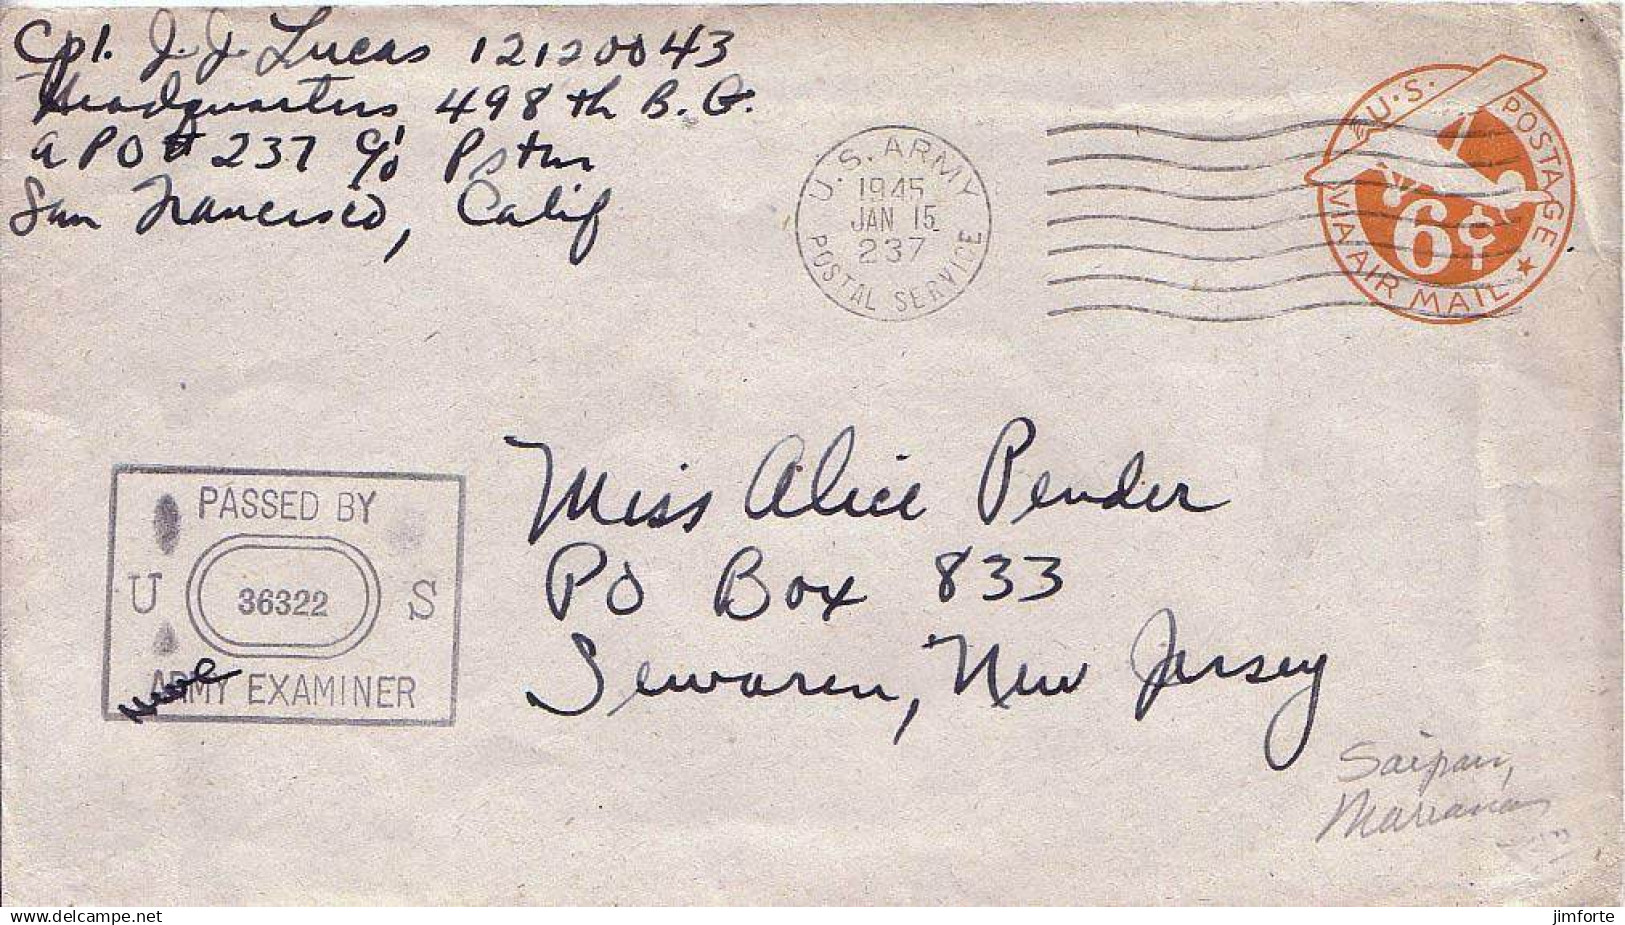 Cpl. J. J. Lucas 12120043
Headquarters 498th B. G.
APO # 237 c/o Pstm
San Francisco, Calif
U.S. ARMY
1945
JAN 15
237
POSTAL SERVICE
U.S. POSTAGE
6¢
VIA AIR MAIL
PASSED BY
U 36322 S
ARMY EXAMINER
Miss Alice Pender
PO Box 833
Sewaren, New Jersey
Saipan,
Marianas
delcampe.net
jimforte